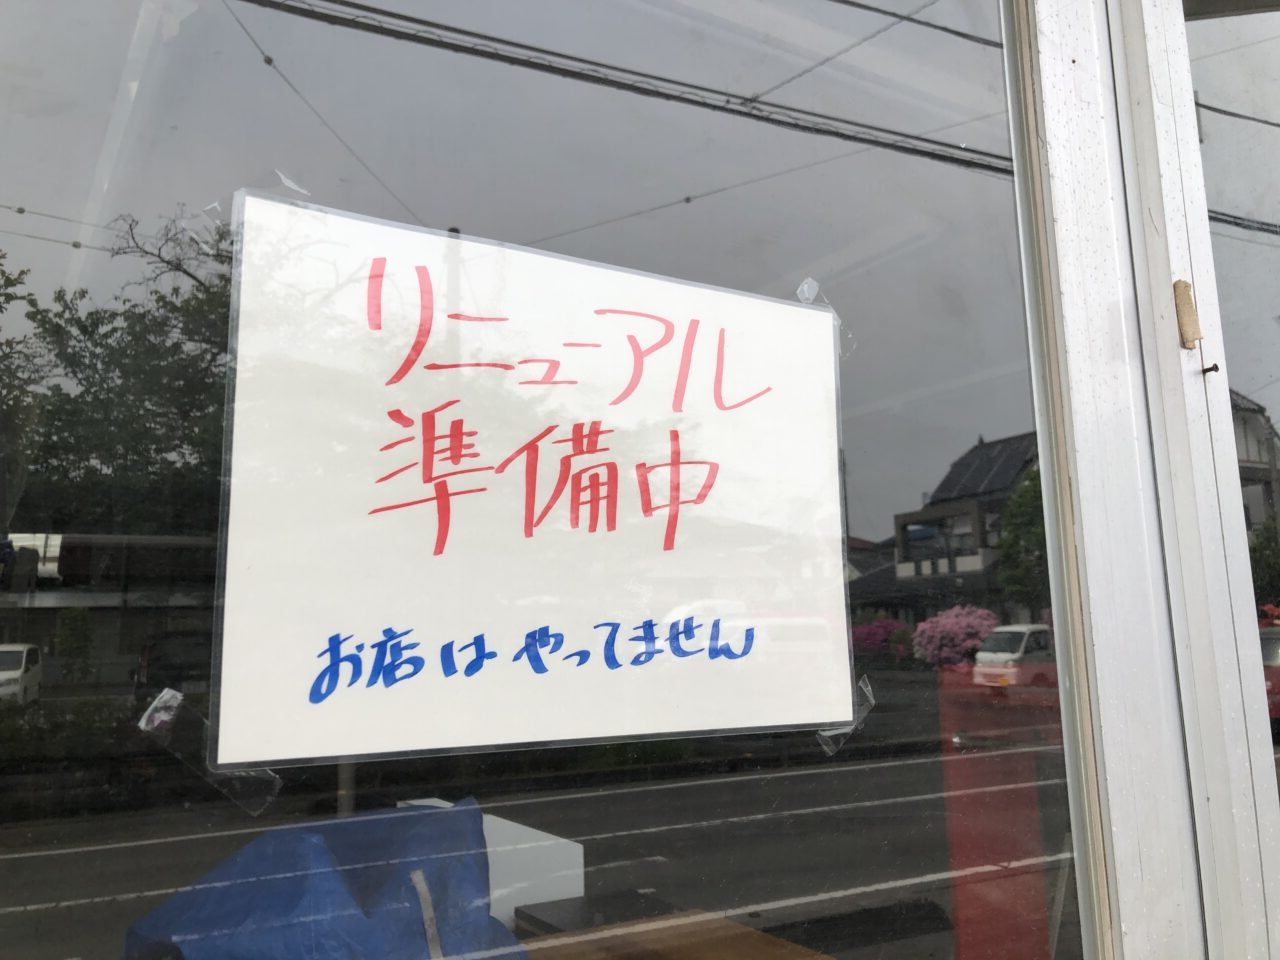 リニューアル
準備中
お店はやってません